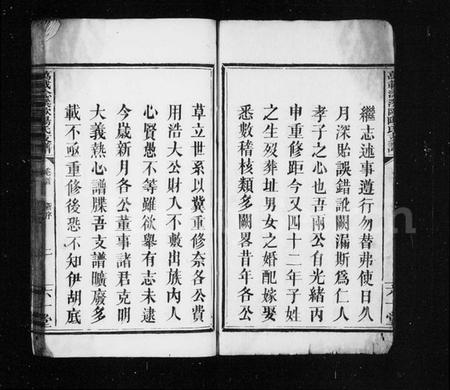 繼志述事遵行勿替弗使日久
月深貽誤錯訛闕漏斯為仁人
孝子之心也吾兩公自光緒丙
申重修距今又四十二年子姓
之生歿葬址男女之婚配嫁娶
悉數稽核類多闕畧昔年各公
草立世系以冀重修奈各公費
用浩大公財人不敷出族內人
心賢愚不等雖欲舉有志未逮
今歲新月各公董事諸君克明
大義熱心譜牒吾支譜曠廢多
載不亟重修後恐不知伊胡底
六一堂